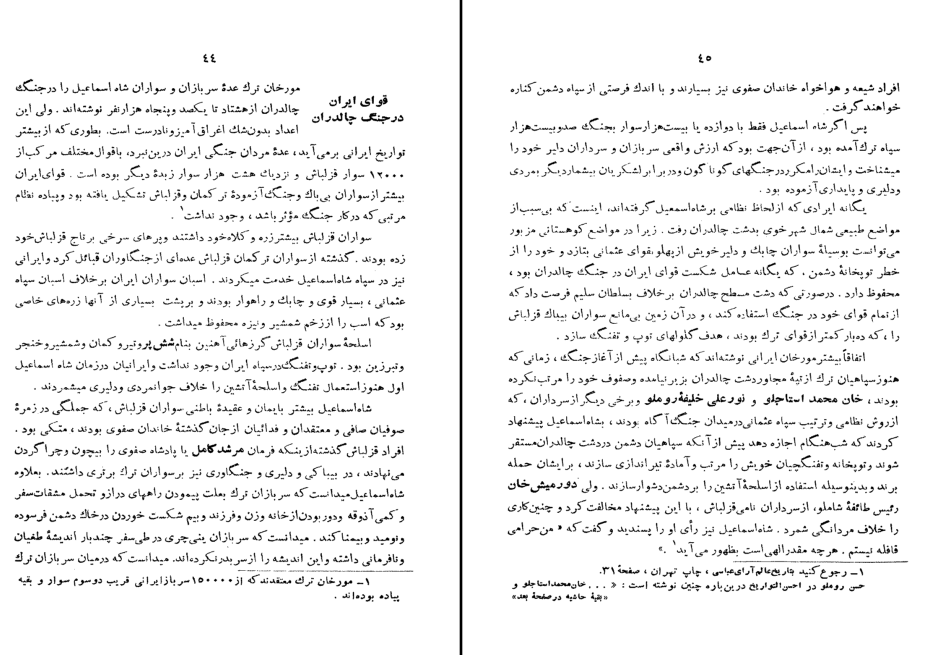 ٤٤
قوای ایران
درجنگ چالدران
مورخان ترك عدهٔ سربازان و سواران شاه اسماعیل را درجنگ
چالدران ازهشتاد تا یکصد وپنجاه هزارنفر نوشته‌اند . ولی این
اعداد بدون‌شك اغراق آمیزونادرست است. بطوری که ازبیشتر
تواریخ ایرانی برمی‌آید ، عدهٔ مردان جنگی ایران درین‌نبرد، باقوال مختلف مرکب از
۱۲۰۰۰ سوار قزلباش و نزدیك هشت هزار سوار زبدهٔ دیگر بوده است . قوای‌ایران
بیشتر ازسواران بی‌باك وجنگ‌آزمودهٔ ترکمان وقزلباش تشکیل یافته بود وپیاده نظام
مرتبی که درکار جنگ مؤثر باشد ، وجود نداشت۱ .
سواران قزلباش بیشترزره و کلاه‌خود داشتند وپرهای سرخی برتاج قزلباش‌خود
زده بودند . گذشته ازسواران ترکمان قزلباش عده‌ای ازجنگاوران قبائل کرد وایرانی
نیز در سپاه شاه‌اسماعیل خدمت میکردند . اسبان سواران ایران برخلاف اسبان سپاه
عثمانی ، بسیار قوی و چابك و راهوار بودند و برپشت بسیاری از آنها زره‌های خاصی
بود که اسب را اززخم شمشیر ونیزه محفوظ میداشت .
اسلحهٔ سواران قزلباش گرزهائی آهنین بنام شش پر وتیرو کمان وشمشیر وخنجر
وتبرزین بود . توپ وتفنگ درسپاه ایران وجود نداشت وایرانیان درزمان شاه اسماعیل
اول هنوز استعمال تفنگ واسلحهٔ آتشین را خلاف جوانمردی ودلیری میشمردند .
شاه‌اسماعیل بیشتر بایمان و عقیدهٔ باطنی سواران قزلباش ، که جملگی در زمرهٔ
صوفیان صافی و معتقدان و فدائیان ازجان گذشتهٔ خاندان صفوی بودند ، متکی بود .
افراد قزلباش گذشته ازینکه فرمان مرشد کامل یا پادشاه صفوی را بیچون وچرا گردن
می‌نهادند ، در بیباکی و دلیری و جنگاوری نیز برسواران ترك برتری داشتند. بعلاوه
شاه‌اسماعیل میدانست که سربازان ترك بعلت پیمودن راههای دراز و تحمل مشقات‌سفر
و کمی آذوقه ودور بودن ازخانه وزن وفرزند وبیم شکست خوردن درخاك دشمن فرسوده
ونومید وبیمناکند . میدانست که سربازان ینی‌چری درطی سفر چندبار اندیشهٔ طغیان
ونافرمانی داشته واین اندیشه را ازسر بدرنکرده‌اند. میدانست که درمیان سربازان ترك
۱ـ مورخان ترك معتقدند که از ۱۵۰۰۰۰ سرباز ایرانی قریب دوسوم سوار و بقیه
پیاده بوده‌اند .
٤٥
افراد شیعه و هواخواه خاندان صفوی نیز بسیارند و با اندك فرصتی از سپاه دشمن کناره
خواهند گرفت .
پس اگرشاه اسماعیل فقط با دوازده یا بیست‌هزارسوار بجنگ صدوبیست‌هزار
سپاه ترك آمده بود ، از آن‌جهت بود که ارزش واقعی سربازان و سرداران دلیر خود را
میشناخت وایشان‌را مکرر درجنگهای گوناگون ودربرابر لشکریان بیشمار دیگر بمردی
ودلیری و پایداری آزموده بود .
یگانه ایرادی که ازلحاظ نظامی برشاه‌اسمعیل گرفته‌اند، اینست که بی‌سبب از
مواضع طبیعی شمال شهرخوی بدشت چالدران رفت . زیرا در مواضع کوهستانی مزبور
می‌توانست بوسیلهٔ سواران چابك و دلیر خویش از پهلو بقوای عثمانی بتازد و خود را از
خطر توپخانهٔ دشمن . که یگانه عامل شکست قوای ایران در جنگ چالدران بود ،
محفوظ دارد . درصورتی که دشت مسطح چالدران برخلاف بسلطان سلیم فرصت داد که
ازتمام قوای خود در جنگ استفاده کند ، و در آن زمین بی‌مانع سواران بیباك قزلباش
را ، که ده‌بار کمتراز قوای ترك بودند ، هدف گلولهای توپ و تفنگ سازد .
اتفاقاً بیشترمورخان ایرانی نوشته‌اند که شبانگاه پیش از آغازجنگ ، زمانی که
هنوزسپاهیان ترك ازتپهٔ مجاوردشت چالدران بزیر نیامده وصفوف خود را مرتب نکرده
بودند ، خان محمد استاجلو و نورعلی خلیفهٔ روملو و برخی دیگر از سرداران ، که
ازروش نظامی وترتیب سپاه عثمانی درمیدان جنگ آگاه بودند ، بشاه‌اسماعیل پیشنهاد
کردند که شب‌هنگام اجازه دهد پیش از آنکه سپاهیان دشمن دردشت چالدران‌مستقر
شوند وتوپخانه وتفنگچیان خویش را مرتب و آمادهٔ تیراندازی سازند ، برایشان حمله
برند و بدینوسیله استفاده ازاسلحهٔ آتشین را بردشمن‌دشوارسازند . ولی دورمیش خان
رئیس طائفهٔ شاملو ، ازسرداران نامی قزلباش ، با این پیشنهاد مخالفت کرد و چنین کاری
را خلاف مردانگی شمرد . شاه‌اسماعیل نیز رأی او را پسندید و گفت که « من حرامی
قافله نیستم . هرچه مقدر الهی است بظهور می‌آید۱ .»
۱ـ رجوع کنید بتاریخ عالم آرای عباسی ، چاپ تهران ، صفحهٔ ۳۱.
حسن روملو در احسن التواریخ درین‌باره چنین نوشته است : « . . . خان‌محمد استاجلو و
«بقیهٔ حاشیه درصفحهٔ بعد»